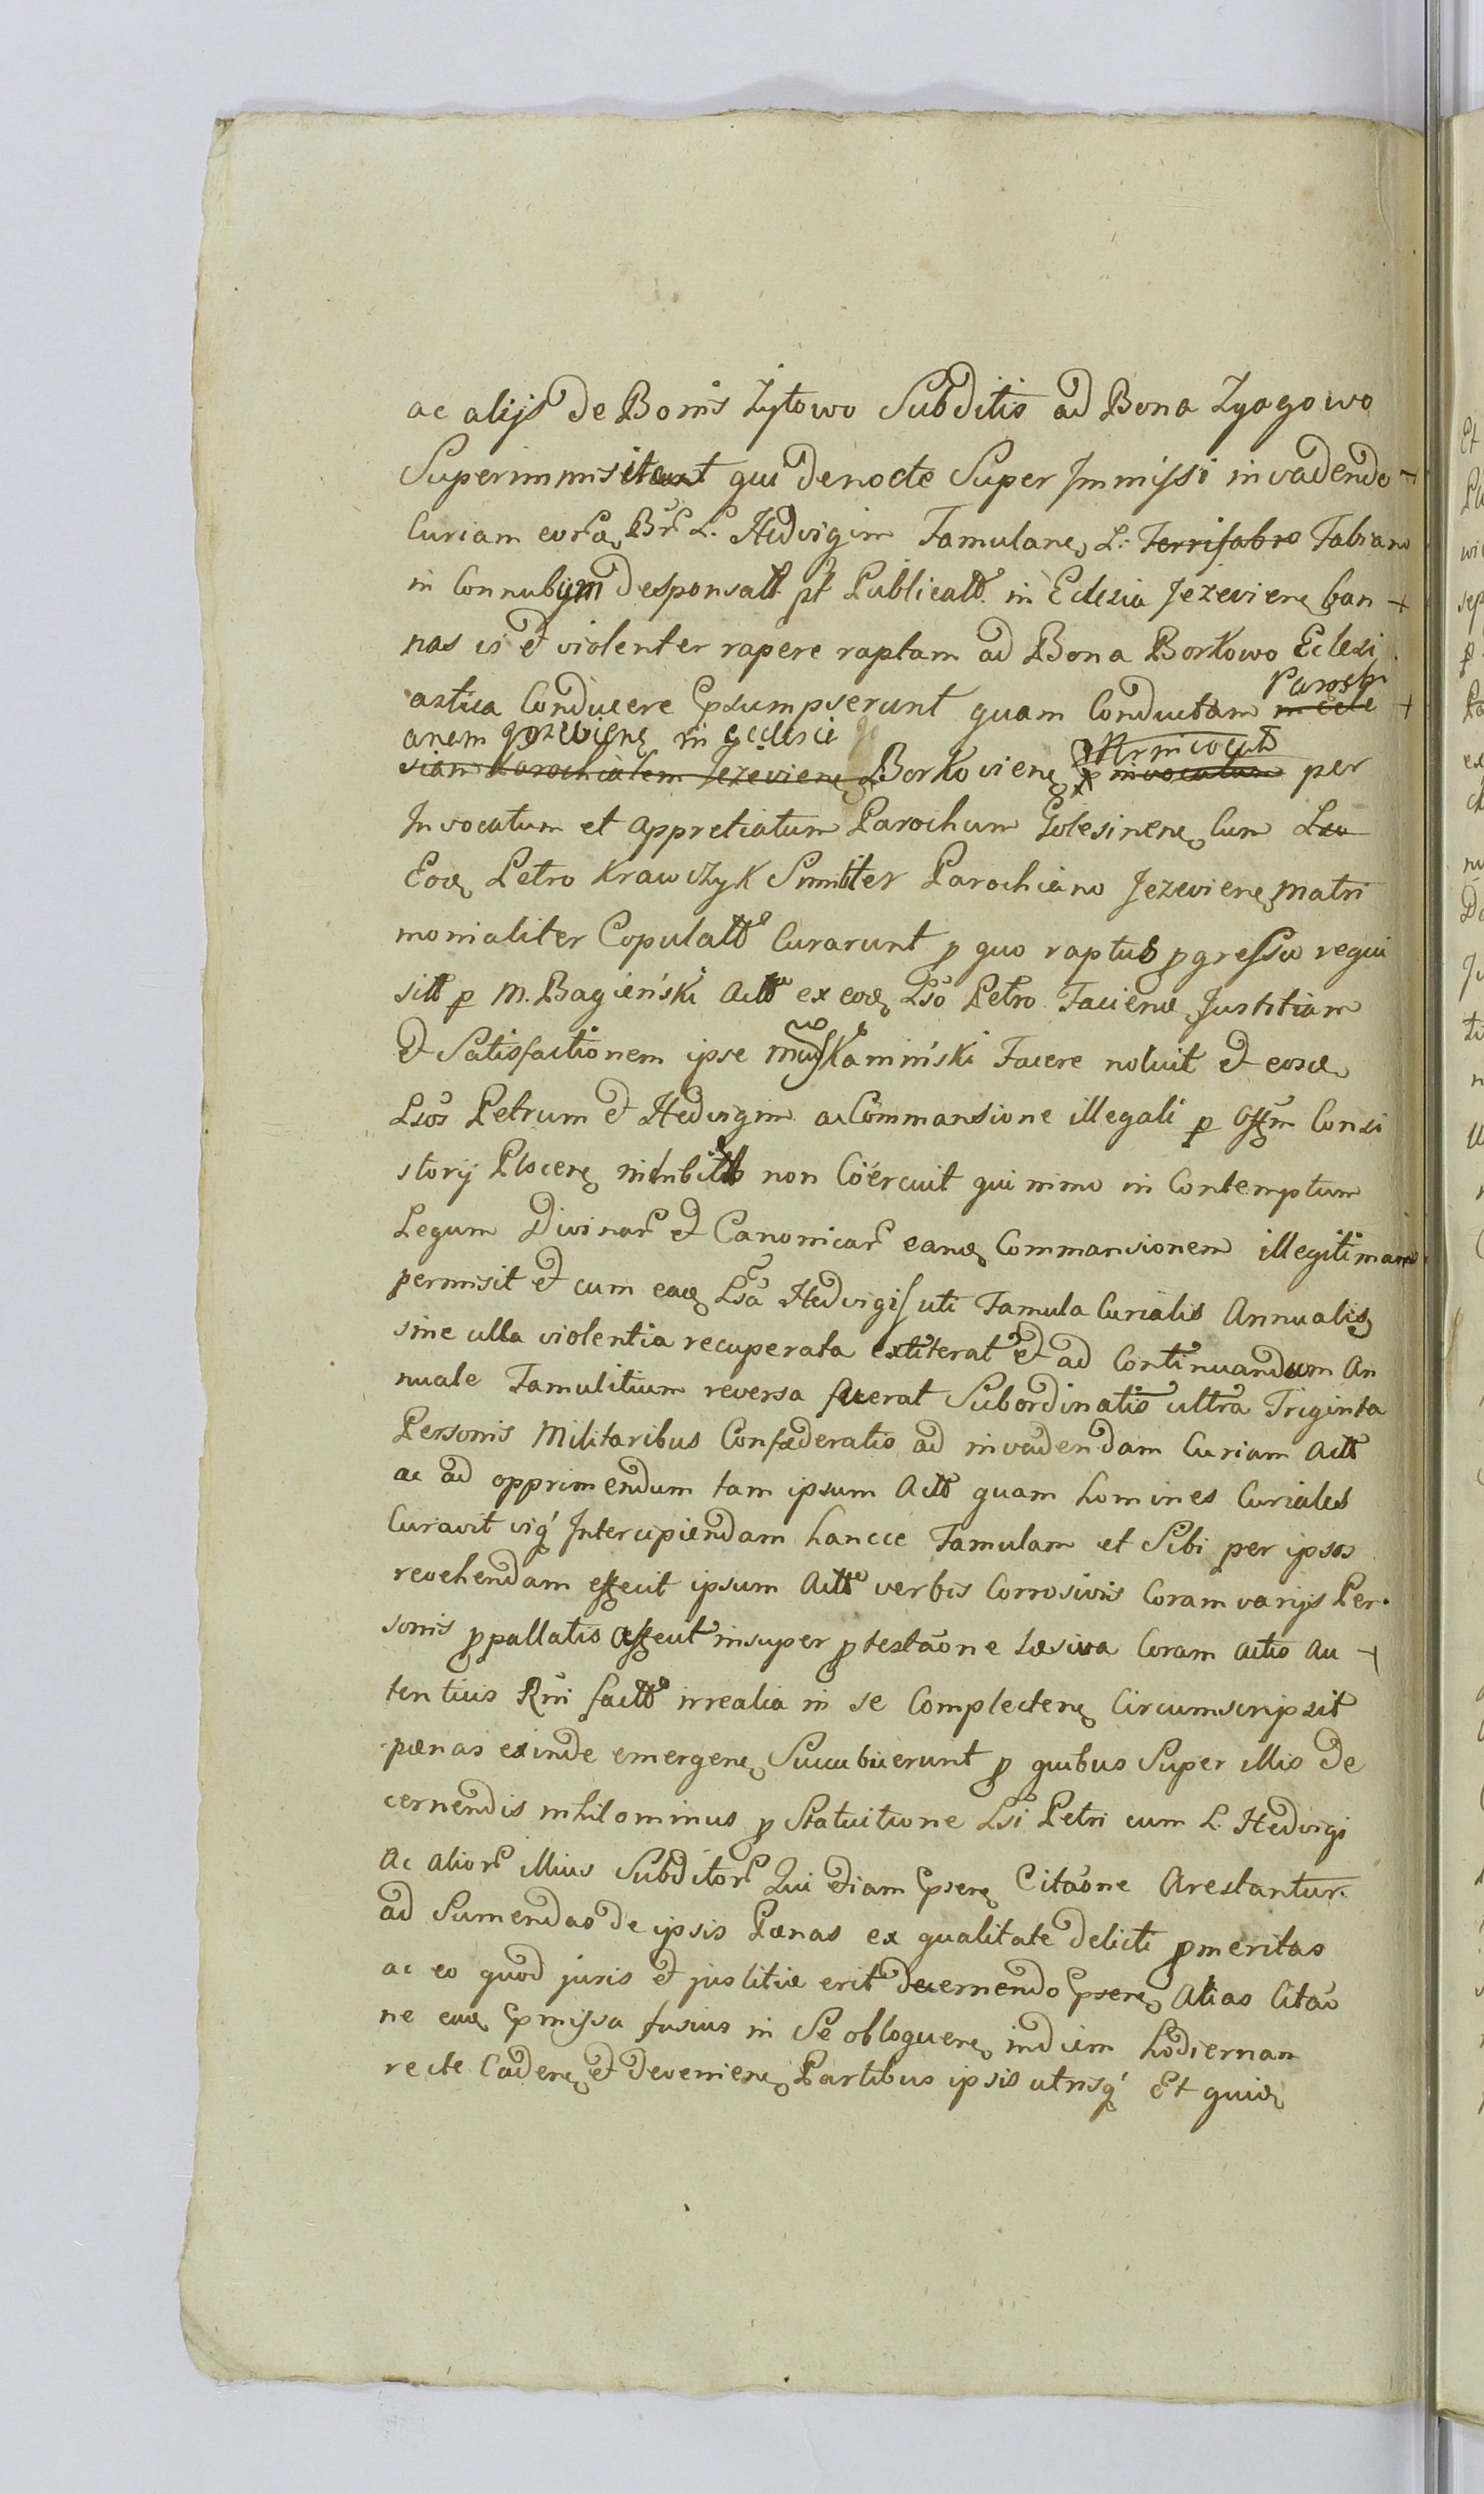 ac alijs de Bonis Zytowo Subditis ad Bona Zyagowo
Superimmisitaut qui denocte Super Immissi invadendo
Curiam L. Hedvigim Famulanę L. Ferrifabro Fabiano
in Connubym desponsatt pt Publicatt in Eclesia Jezevienę ban
nas is et violenter rapere raptam ad Bona Borkowo Eclesi
astica Conducere psumpserunt quam Conductam in ecle Paroch
anem Jezevienę in ecclesie
siam Parochialem Jezevienę Borkovienę invocatum per
Invocatum et appretiatum Parochum Golesinenę Cum Lzo
Eod Petro Krawczyk Simitter Parochiano Jezevienę matri
monialiter Copulatt Curarunt p quo raptus pgressu requi
sitt p M. Bagieński Actt ex eod Lso Petro Faciend Justitiam
et Satisfactionem ipse Kaminski Facere noluit et eosd
Lsos Petrum et Hedvigim a Commansione illegali p Offm Consi
storij Plocenę inhibitt non Coercuit qui nimo in Contemptum
Legum Divinar et Canonicar eand Commansionem illegitimam
permisit et cum ead Lsa Hedvigis uti Famula Curialis Annualis
sine ulla violentia recuperata extiterat et ad Continuandum An
nuale Famulitium reversa fuerat Subordinatis ultra Triginta
Personis Militaribus Confæderatis ad invadendam Curiam Actt
ac ad opprimendum tam ipsum Actt quam homines Curiales
Curavit viq Intercipiendam hancce Famulam et Sibi per ipsos
revehendam effecit ipsum Actt verbis Corrosivis Coram varijs Per
sonis ppallatis affecit insuper ptestaone læsiva Coram actis Au
tenticis Rni factt irrealia in se Complectenę Circumscripsit
pænas exinde emergenę Succubuerunt p quibus Super illis de
cernendis nihilominus p Statuitione Lsi Petri cum L. Hedvigi
Ac alior illius Subditor Qui etiam psenę Citaone Arestantur
ad Sumendas de ipsis Pænas ex qualitate delicti pmeritas
ac eo quod juris et justitiæ erit decernendo psenę alias Citao
ne ead pmissa fusius in Se obloquenę indiem hodiernam
recte Cadenę et Devenienę Partibus ipsis utrisq Et quid